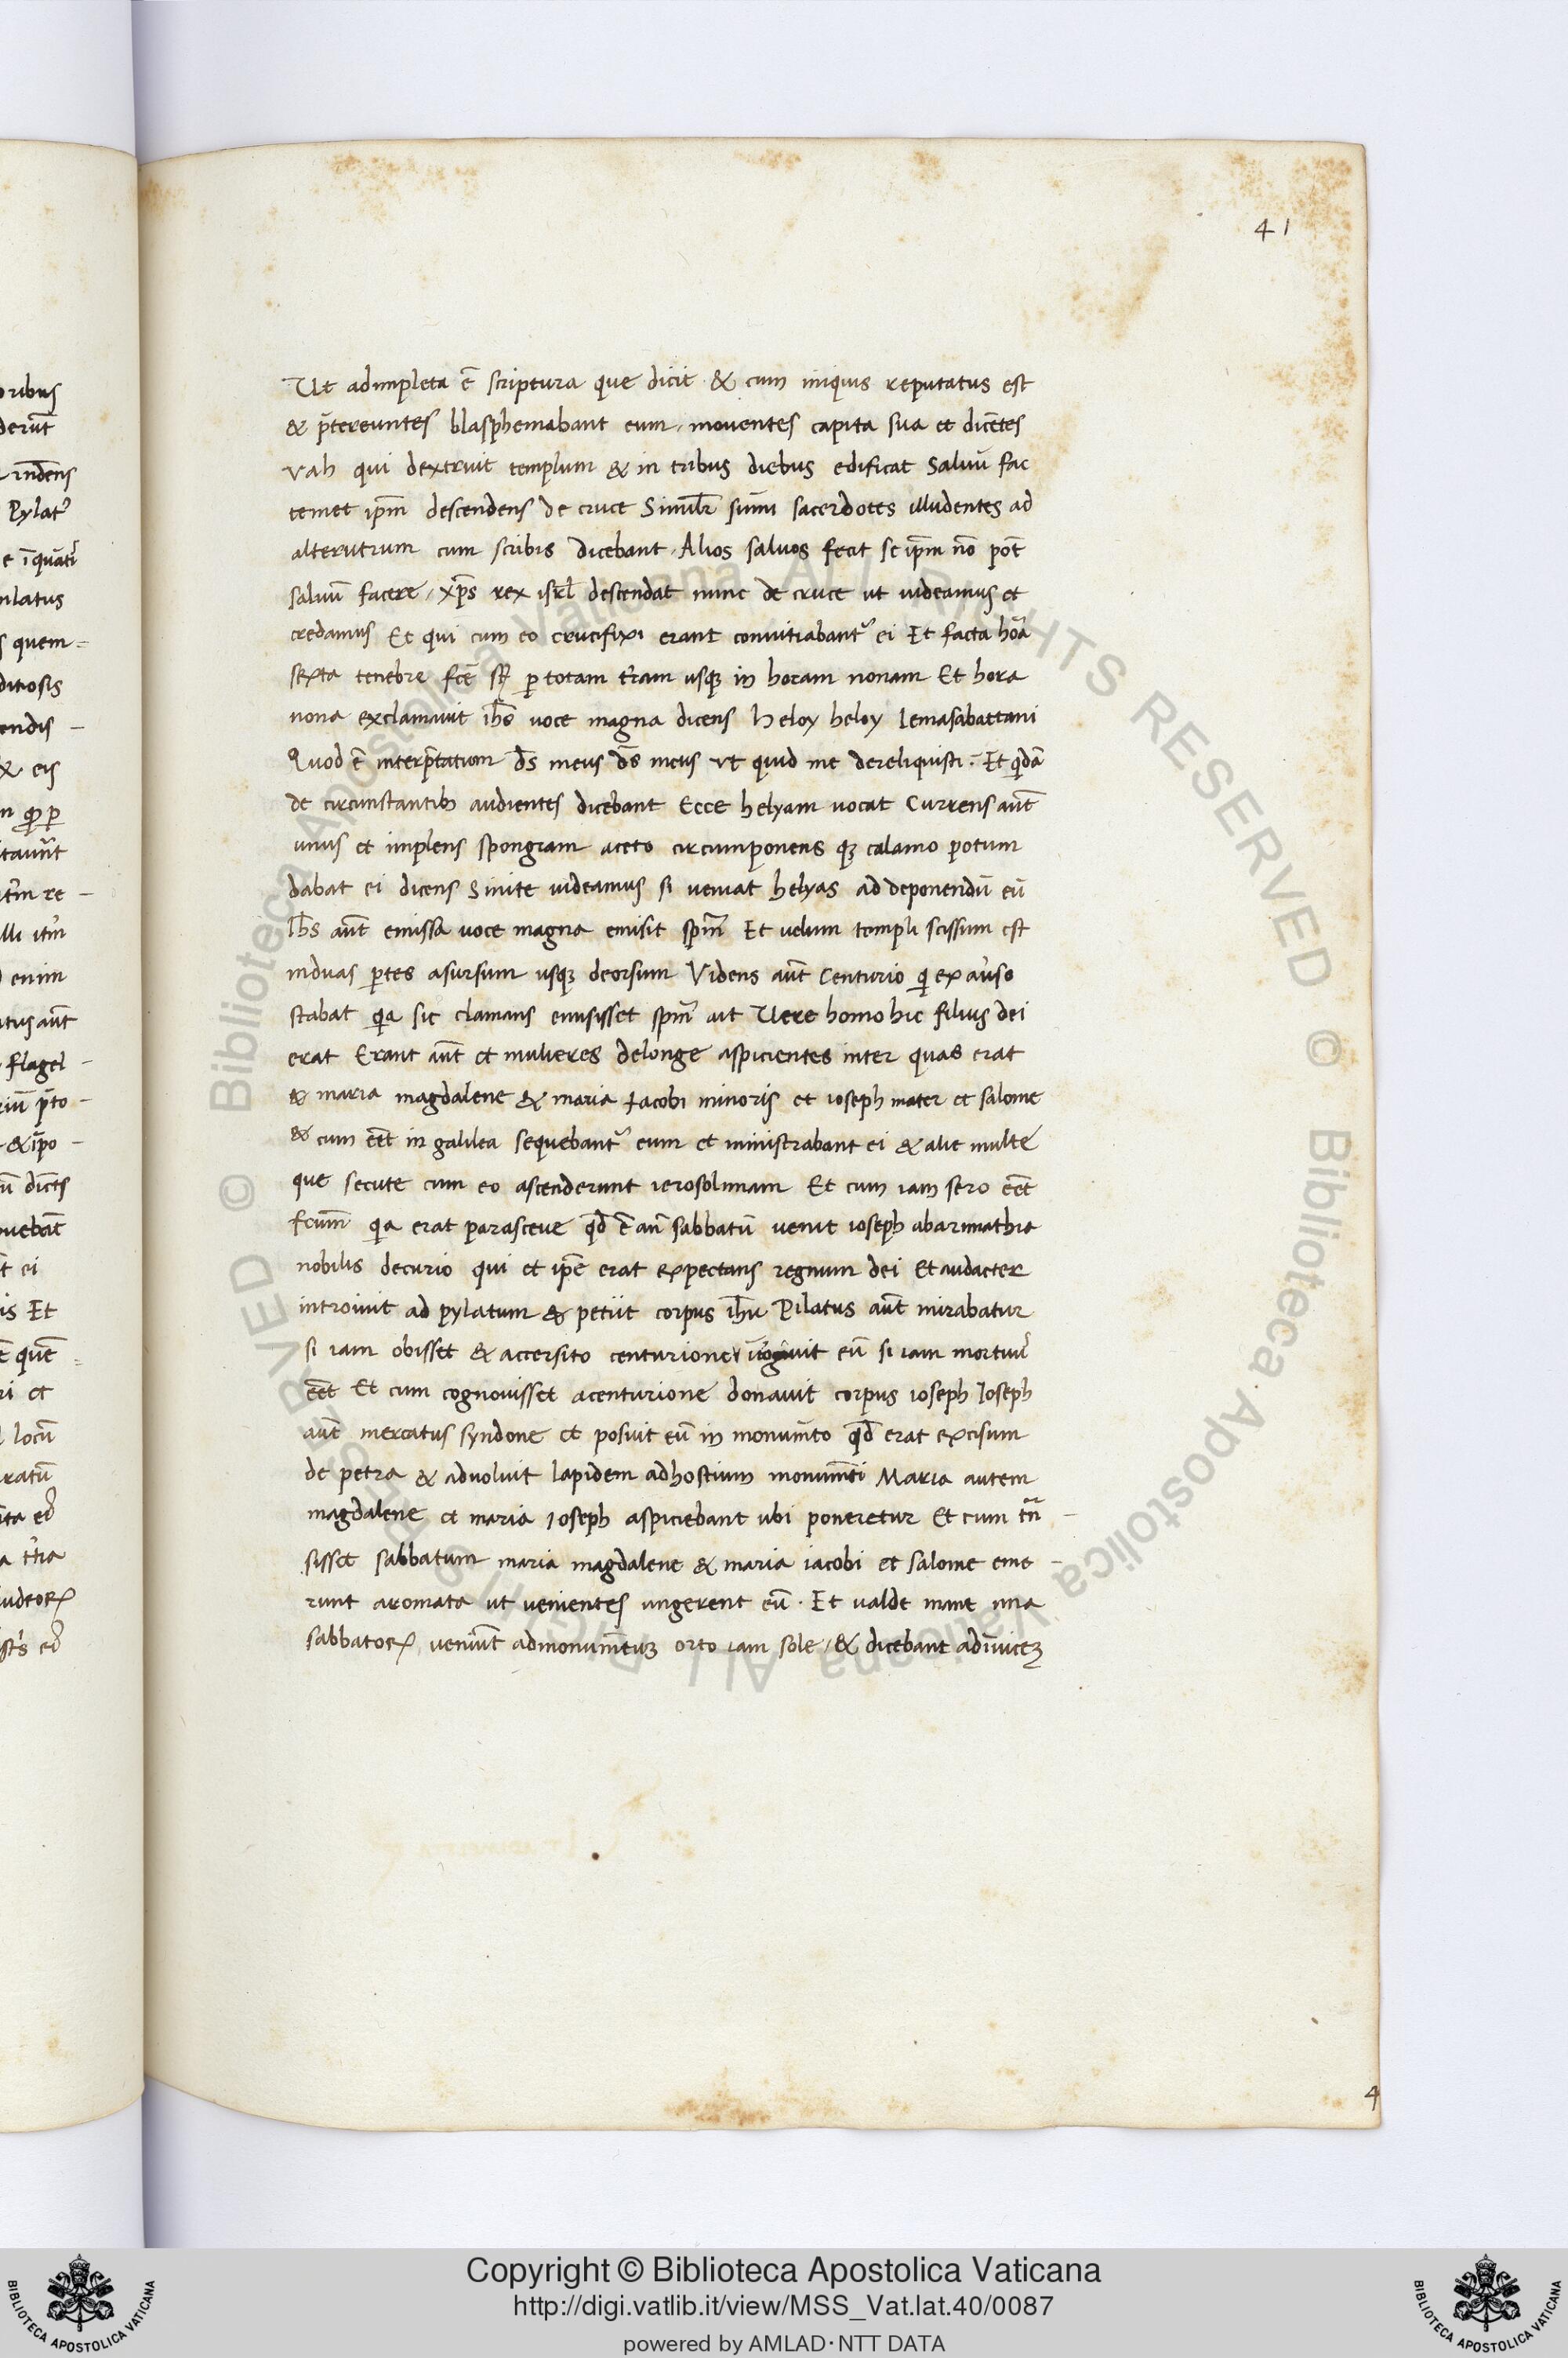 41
Ut adimpleta ē scriptura que dicit & cum iniquis reputatus est
& p̄tereuntes blasphemabant eum, moventes capita sua et dicētes
vah qui dextruit templum & in tribus diebus edificat Salvū fac
temet ip̄m descendens de cruce Simil̄r sūmi sacerdotes illudentes ad
alterutrum cum scribis dicebant. Alios salvos fecit se ip̄m nō pōt
salvū facere, xp̄s rex isrl̄ descendat nunc de cruce ut videamus et
credamus Et qui cum eo crucifixi erant convitiabantᷣ ei Et facta hōa
sexta tenebre fc̄e sꝫ p totam t̄ram usqꝫ in horam nonam Et hora
nona exclamavit ih̄s voce magna dicens heloy heloy lemasabattani
Quod ē interp̄tatum d̄s meus d̄s meus ut quid me dereliquisti. Et qͥdā
de circunstantibꝫ audientes dicebant Ecce helyam vocat Currens aūt
unus et implens spongiam aceto circumponens qꝫ calamo potum
dabat ei dicens Sinite videamus si veniat helyas ad deponendū eū
Ih̄s aūt emissa voce magna emisit sp̄m Et velum templi scissum est
induas p̄tes asursum usqꝫ deorsum Videns aūt Centurio qͥ ex av̓so
stabat qͥa sic clamans emisisset sp̄m ait Vere homo hic filius dei
erat Erant aūt et mulieres delonge aspicientes inter quas erat
& maria magdalene & maria Iacobi minoris et ioseph mater et salome
& cum eēt in galilea sequebantᷣ eum et ministrabant ei & alie multe
que secute cum eo ascenderunt ierosolimam Et cum iam sero eēt
fcūm qͥa erat parasceve qd̄ ē an̄ sabbatū venit ioseph abarimathia
nobilis decurio qui et ip̄e erat expectans regnum dei Et audacter
introivit ad pylatum & petiit corpus ih̄u Pilatus aūt mirabatur
si iam obisset & accersito centurione eū si iam mortuꝰ
eēt Et cum cognovisset acenturione donavit corpus ioseph Ioseph
aūt mercatus syndone et posuit eū in monum̄to qd̄ erat excisum
de petra & advolvit lapidem adhostium monum̄ti Maria autem
magdalene et maria Ioseph aspiciebant ubi poneretur Et cum tn̄ -
sisset sabbatum maria magdalene & maria iacobi et salome eme -
runt aromata ut venientes ungerent eū. Et valde mane una
sabbatoꝝ veniūt admonum̄tuꝫ orto iam sole, & dicebant adīviceꝫ
4
Copyright © Biblioteca Apostolica Vaticana
http://digi.vatlib.it/view/MSS_Vat.lat.40/0087
powered by AMLAD·NTT DATA
BIBLIOTECA APOSTOLICA VATICANA
BIBLIOTECA APOSTOLICA VATICANA